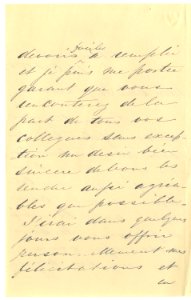 faciles
devoirs à remplir
et je puis me porter
garant que vous
rencontrerez de la
part de tous vos
collègues sans excep
tion un désir bien
sincère de vous les
rendre aussi agréa
bles que possible.
J'irai dans quelques
jours vous offrir
personnellement mes
félicitations et